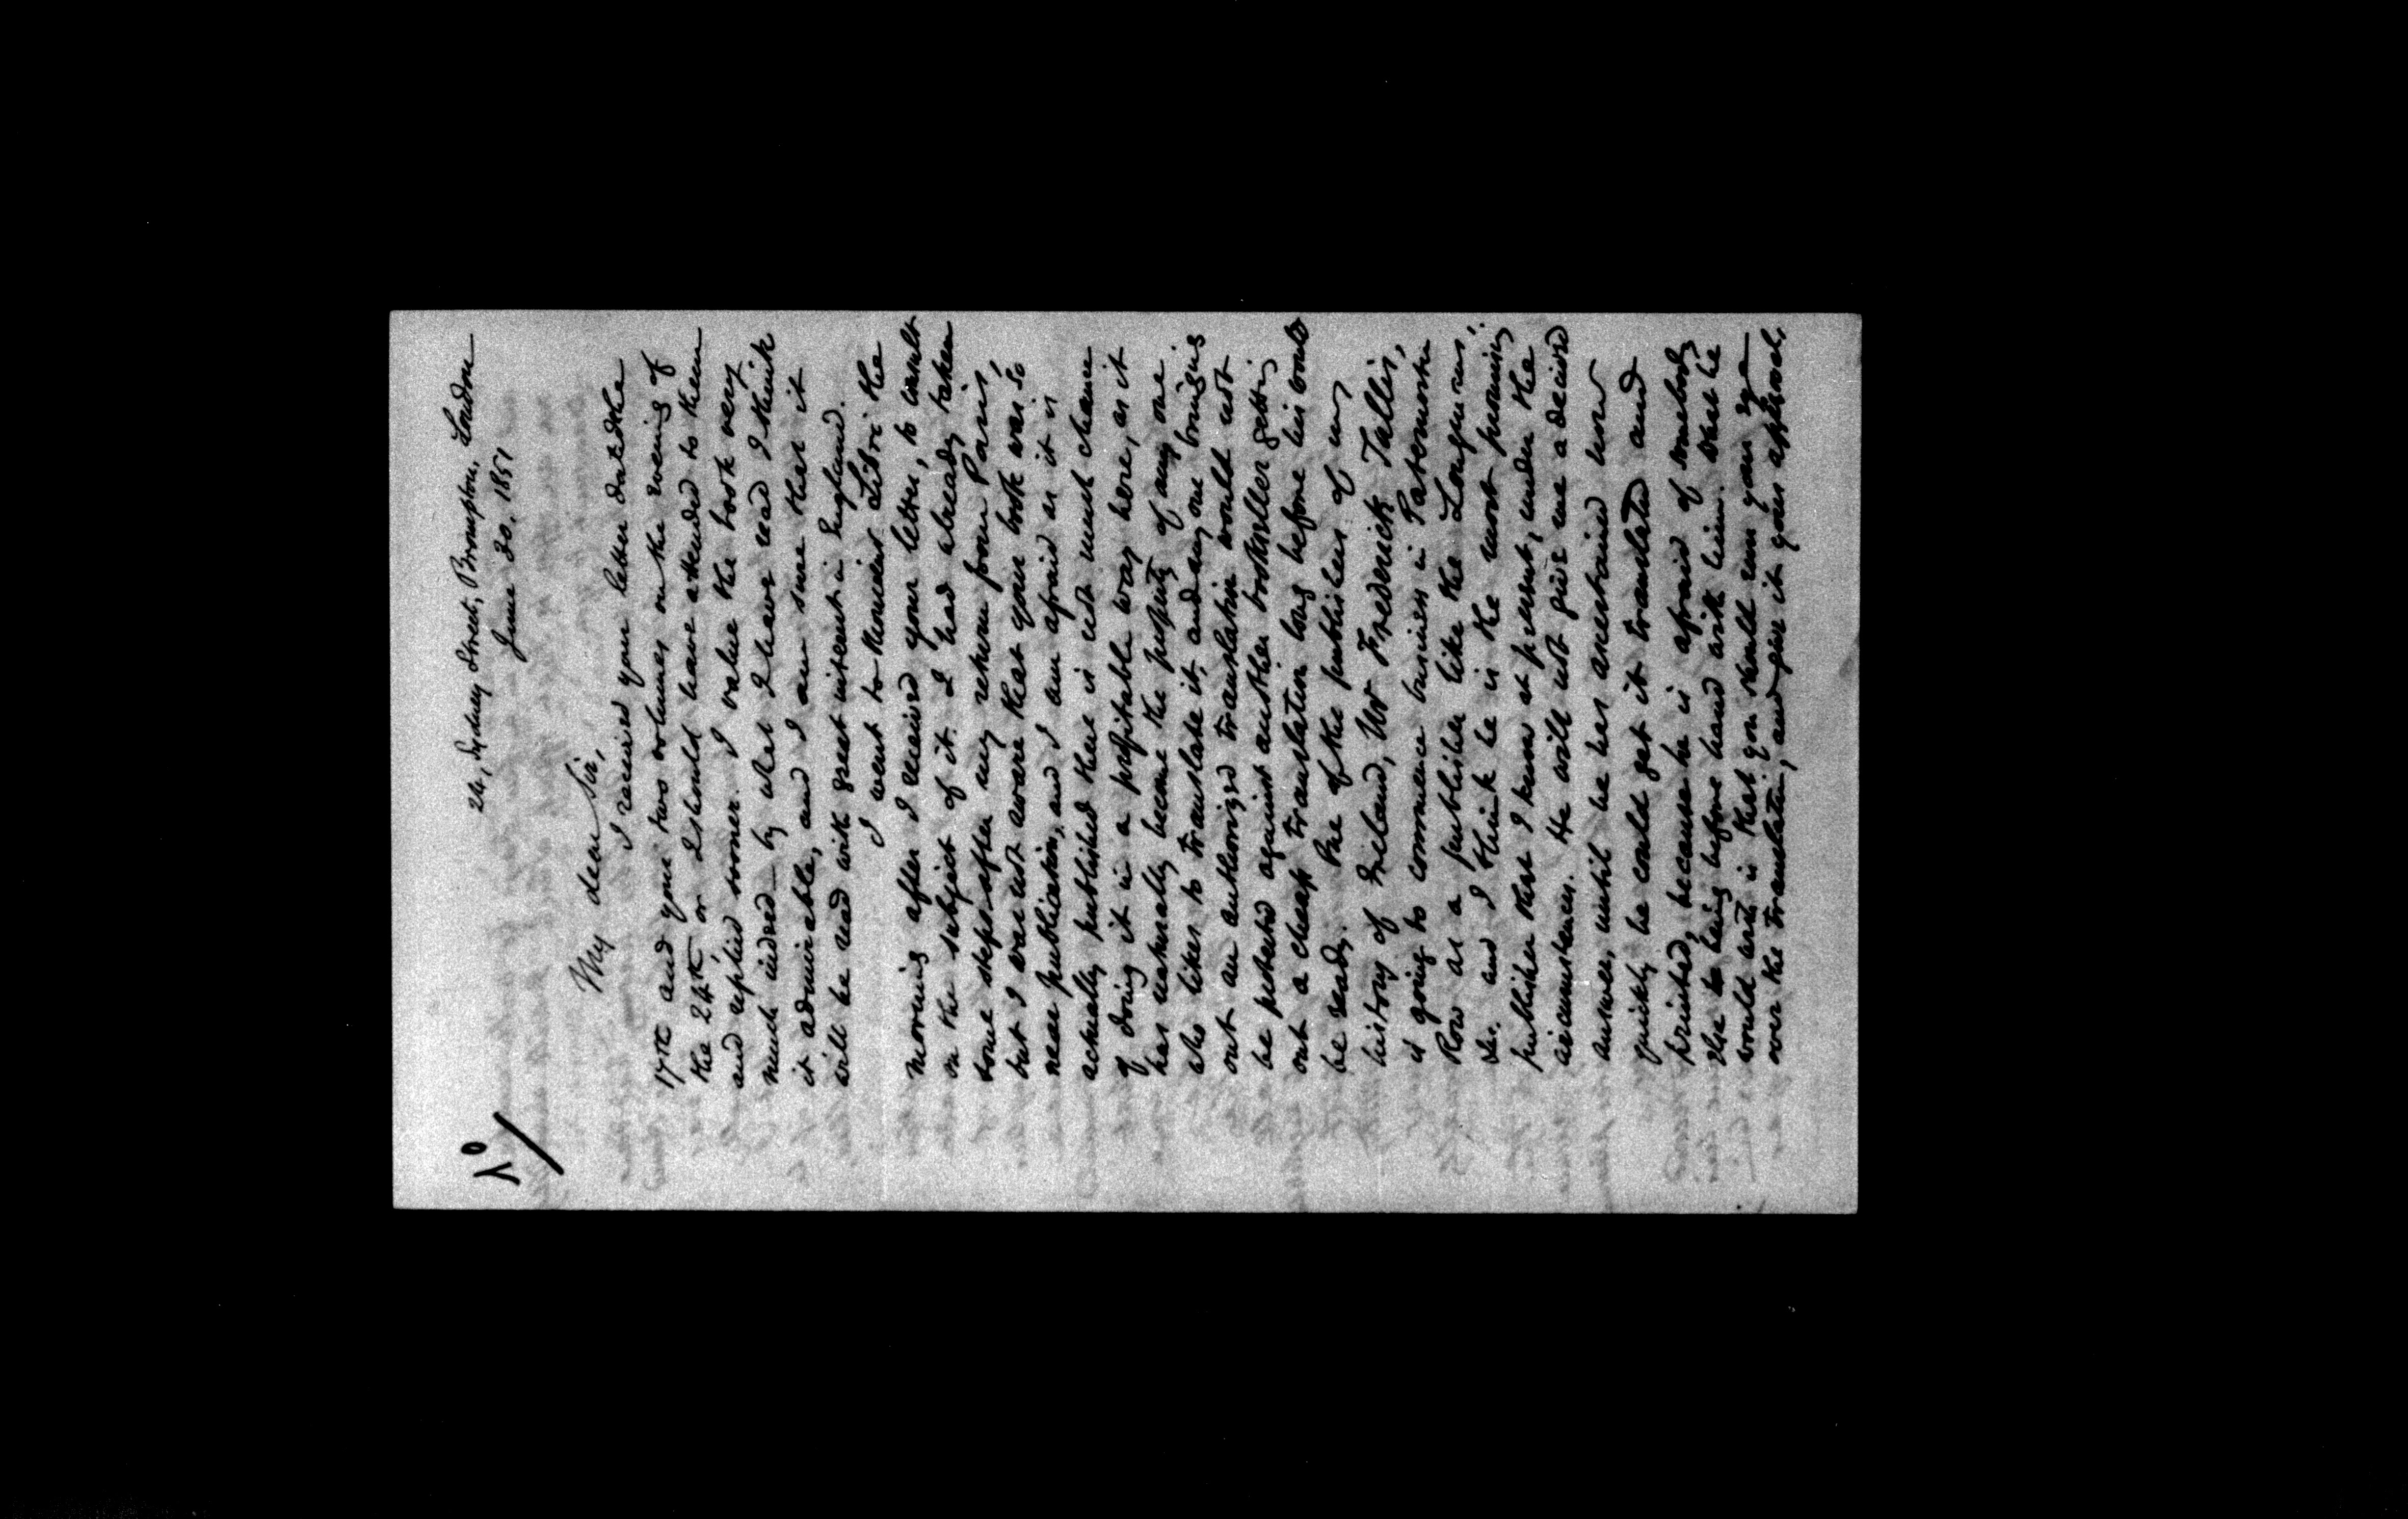 24, Sydney Street, Brompton, London
June 30. 1851
My dear Sir,
I received your letter dated the
17th and your two volumes on the evening of
the 24th, or I should have attended to them
and replied sooner. I value the book very
much indeed – by what I have read I think
it admirable, and I am sure that it
will be read with great interest in England.
I went to Monsieur Libri the
morning after I received your letter, to consult
on the subject of it. I had already taken
some steps after my return from Paris,
but I was not aware that your book was so
near publication, and I am afraid as it is
actually published there is not much chance
of doing it in a profitable way here, as it
has naturally become the property of any one
who likes to translate it, and any one bringing
out an authorized translation would not
be protected against another bookseller getting
out a cheap translation long before his could
be ready. One of the publishers of my
history of Ireland, Mr Frederick Tallis,
is going to commence business in Paternoster
Row as a publisher like the Longmans,
&c. and I think he is the most promising
publisher that I know at present, under the
circumstances. He will not give me a decided
answer, until he has ascertained how
quickly he could get it translated and
printed, because he is afraid of somebody
else being before hand with him. What he
would wish is that you should run your eye
over the translation, and give it your approval,